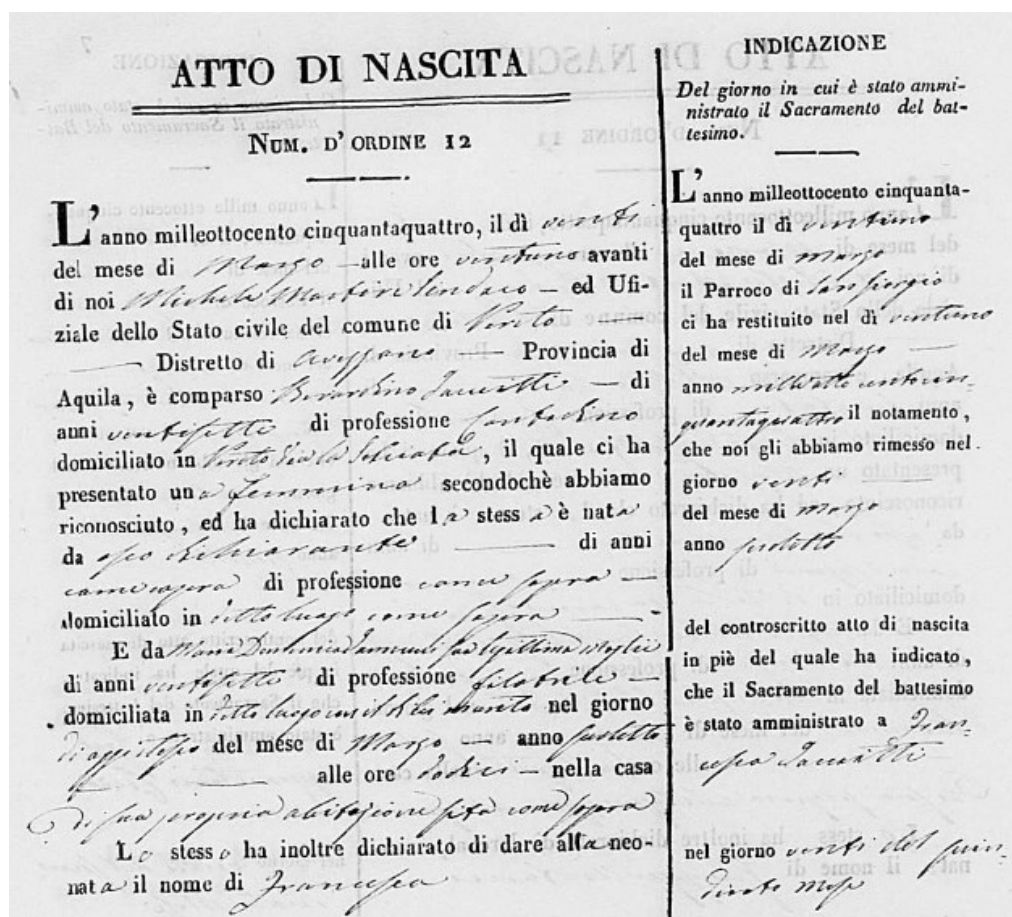 ATTO DI NASCITA
NUM. D'ORDINE 12
L'anno milleottocento cinquantaquattro, il dì venti
del mese di Marzo alle ore ventuno avanti
di noi Michele Sindaco — ed Ufi-
ziale dello Stato civile del comune di
— Distretto di Avezzano — Provincia di
Aquila, è comparso Berardino — di
anni ventisette di professione
domiciliato in, il quale ci ha
presentato una femmina secondochè abbiamo
riconosciuto, ed ha dichiarato che la stessa è nata
da esso dichiarante — di anni
come sopra di professione come sopra —
domiciliato in detto luogo come sopra —
E da Maria sua legittima moglie
di anni ventisette di professione filatrice —
domiciliata in detto luogo marito nel giorno
di oggi stesso del mese di Marzo — anno suddetto
— alle ore dodici — nella casa
di sua propria abitazione sita come sopra
Lo stesso ha inoltre dichiarato di dare alla neo-
nata il nome di Francesca
INDICAZIONE
Del giorno in cui è stato ammi-
nistrato il Sacramento del bat-
tesimo.
L'anno milleottocento cinquanta-
quattro il dì ventuno
del mese di Marzo
il Parroco di San Giorgio
ci ha restituito nel dì ventuno
del mese di Marzo —
anno milleottocentocin-
quantaquattro il notamento,
che noi gli abbiamo rimesso nel
giorno venti —
del mese di Marzo
anno suddetto
del controscritto atto di nascita
in piè del quale ha indicato,
che il Sacramento del battesimo
è stato amministrato a Fran-
cesca
nel giorno venti del
mese